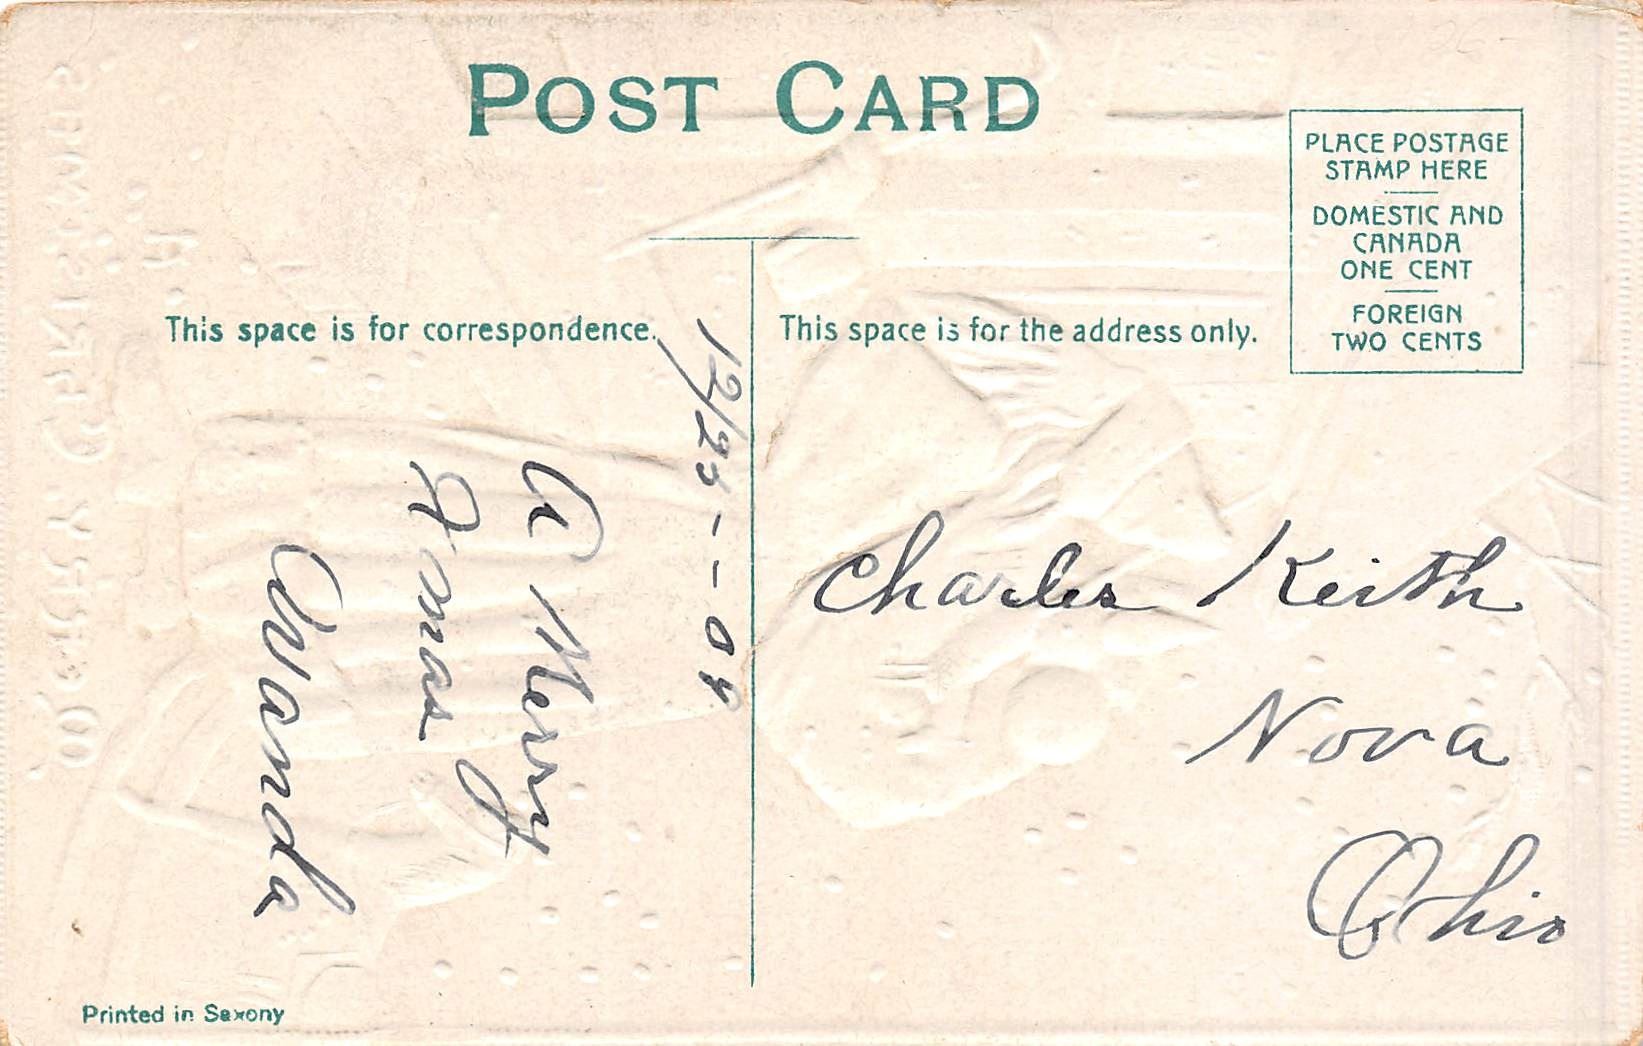 POST CARD
PLACE POSTAGE
STAMP HERE
DOMESTIC AND
CANADA
ONE CENT
FOREIGN
TWO CENTS
This space is for correspondence.
This space is for the address only.
12/25 - - 09
A Merry
Xmas
Wanda
Charles Keith
Nova
Ohio
Printed in Saxony